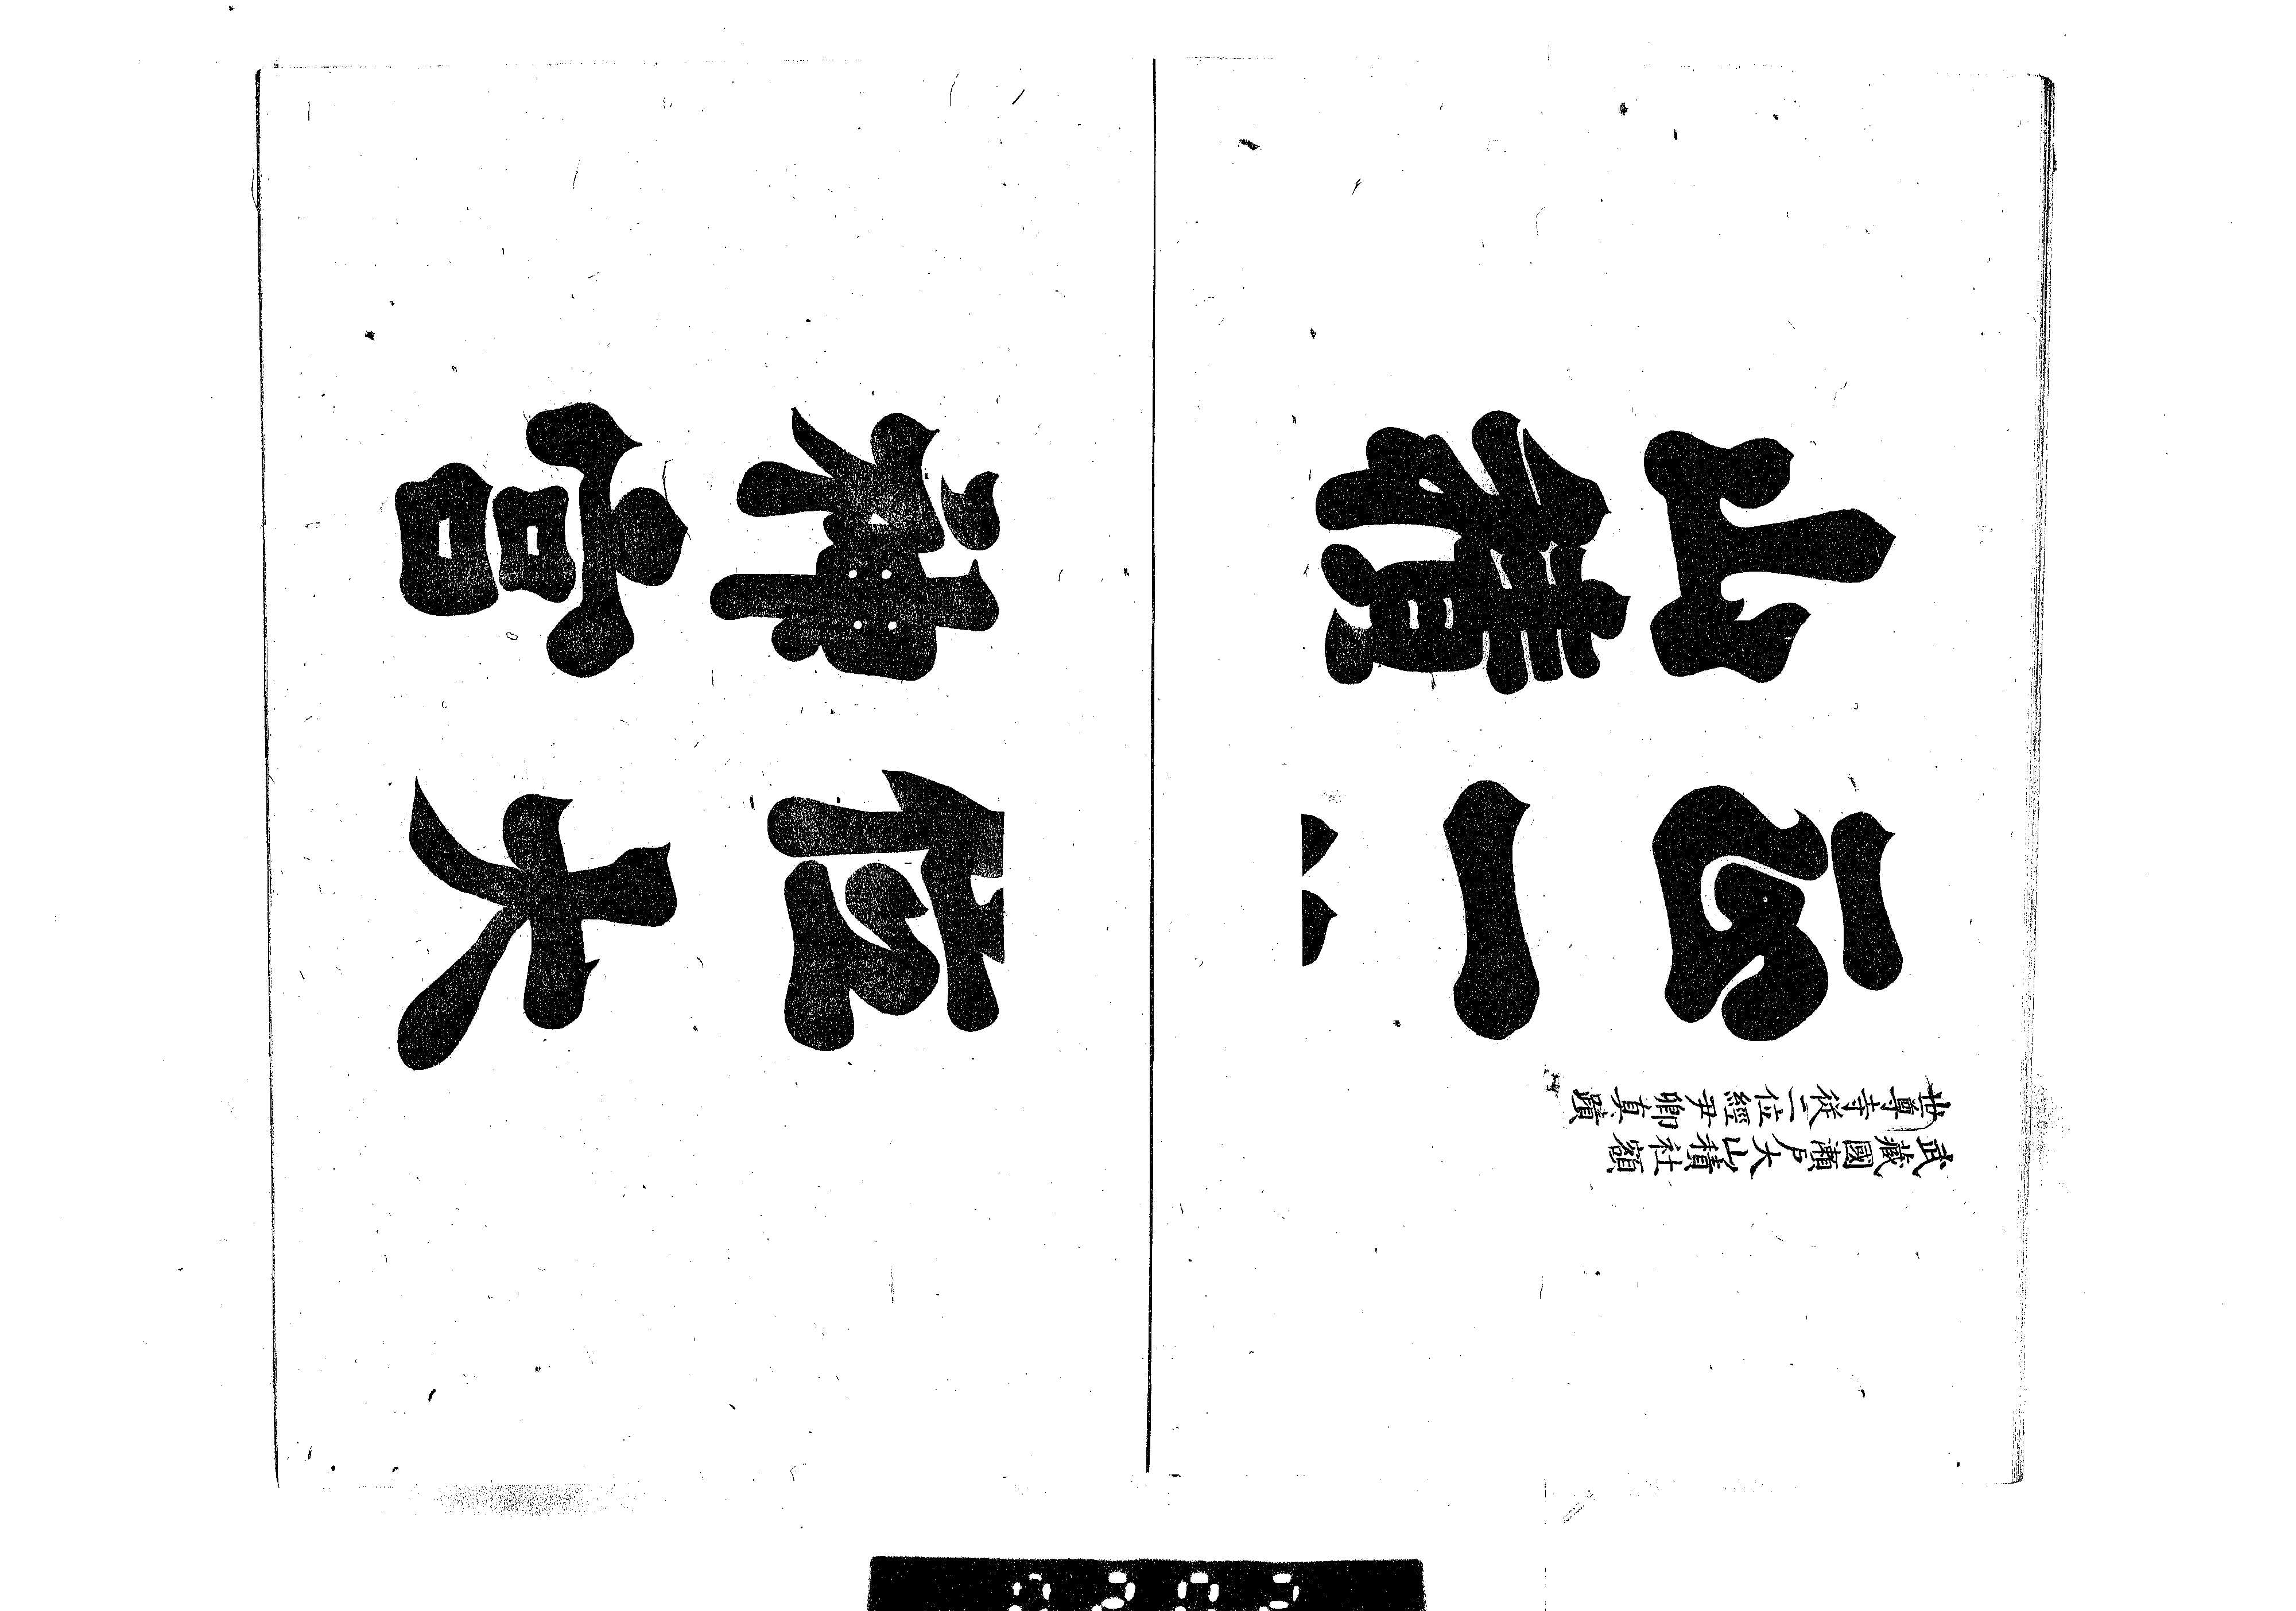 武藏國瀬戸大山積社額
世尊寺從二位經尹卿真蹟
正一位大
山積神宮